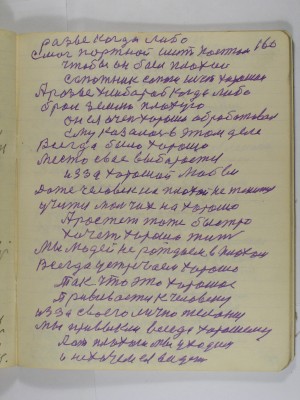 разве когда либо
смог портной шить костюм 160
чтобы он был плохии
сапожник сапоги шил хорошо
Аразве хлибороб когда либо
брал землю плохую
он ее очен хорошо обработовал
ему казалос в этом деле
Всегда было хорошо
место свое выбарости
изза хорошой
Даже человек на плохой не
учити мол чих на хорошо
Аростет тоже быстро
хочет хорошо жит
Мы людей не рождаем в плохом
Всегда устречаем хорошо
так что это хорошое
прививаетси к человеку
изза своего лично
мы привыкли всегда хорошому
Аот плохого мы уходим
и нехочем ее видит